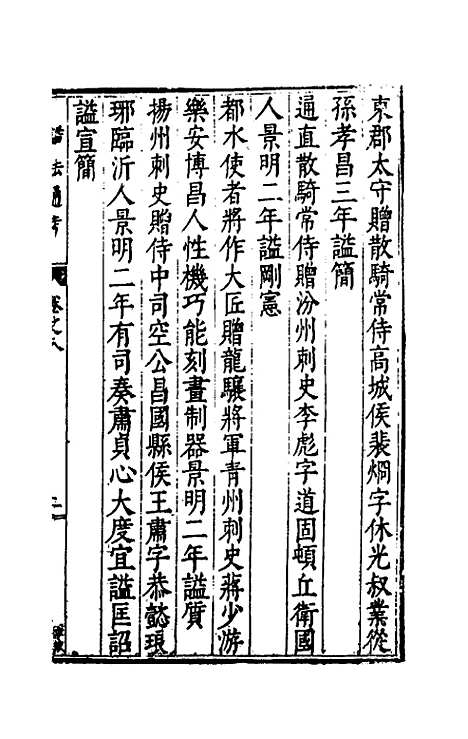 東郡太守贈散騎常侍高城侯裴烱字休光叔業從
孫孝昌三年謚簡
通直散騎常侍贈汾州刺史李彪字道固頓丘衛國
人景明二年謚剛憲
都水使者將作大匠贈龍驤將軍青州刺史蔣少游
樂安博昌人性機巧能刻畫制器景明二年謚質
揚州刺史贈侍中司空公昌國縣侯王肅字恭懿琅
琊臨沂人景明二年有司奏肅貞心大度宜謚匡詔
謚宣簡
謚法通考 卷之八